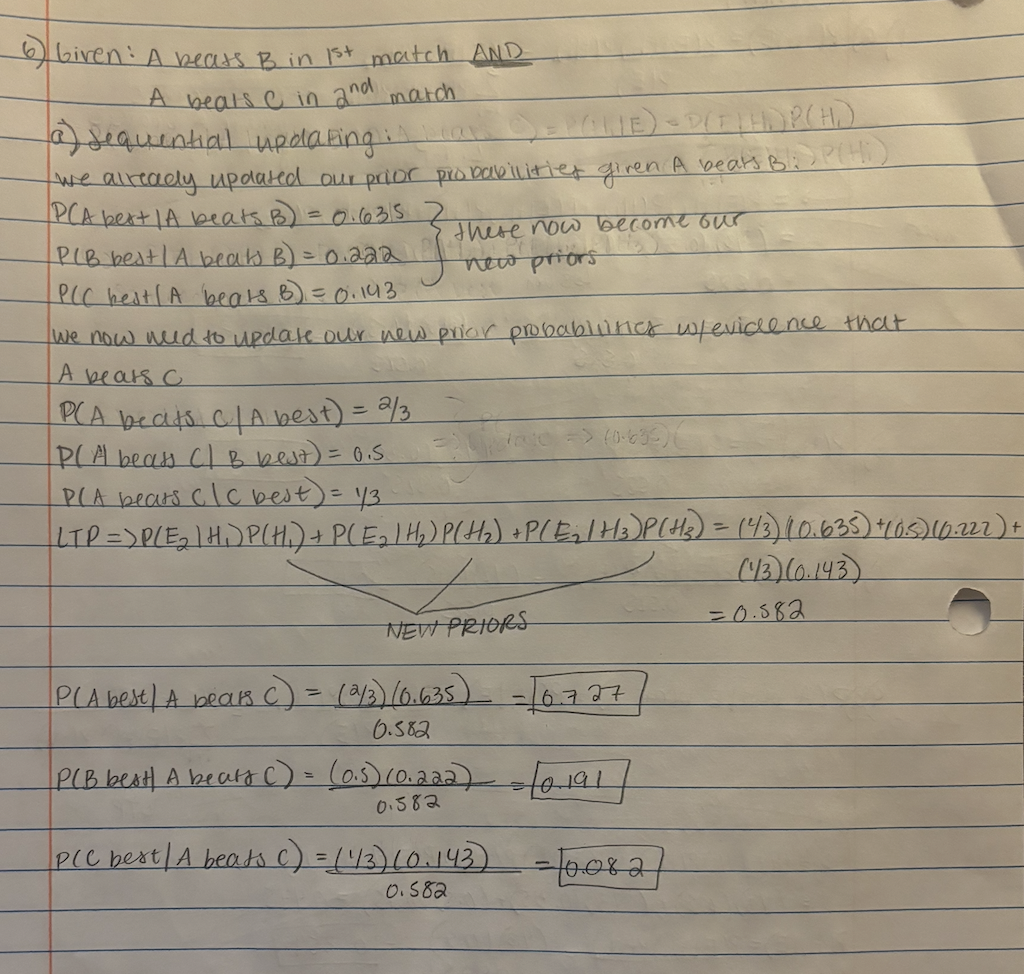 6) Given: A beats B in 1st match AND
A beats C in 2nd match
a) Sequential updating:
we already updated our prior probabilities given A beats B:
P(A best | A beats B) = 0.635
P(B best | A beats B) = 0.222
P(C best | A beats B) = 0.143
} these now become our
new priors
We now need to update our new prior probabilities w/evidence that
A beats C
P(A beats C | A best) = 2/3
P(A beats C | B best) = 0.5
P(A beats C | C best) = 1/3
LTP => P(E₂|H₁)P(H₁) + P(E₂|H₂)P(H₂) + P(E₂|H₃)P(H₃) = (2/3)(0.635)+(0.5)(0.222)+
(1/3)(0.143)
= 0.582
NEW PRIORS
P(A best | A beats C) = (2/3)(0.635) = 0.727
0.582
P(B best | A beats C) = (0.5)(0.222) = 0.191
0.582
P(C best | A beats C) = (1/3)(0.143) = 0.082
0.582